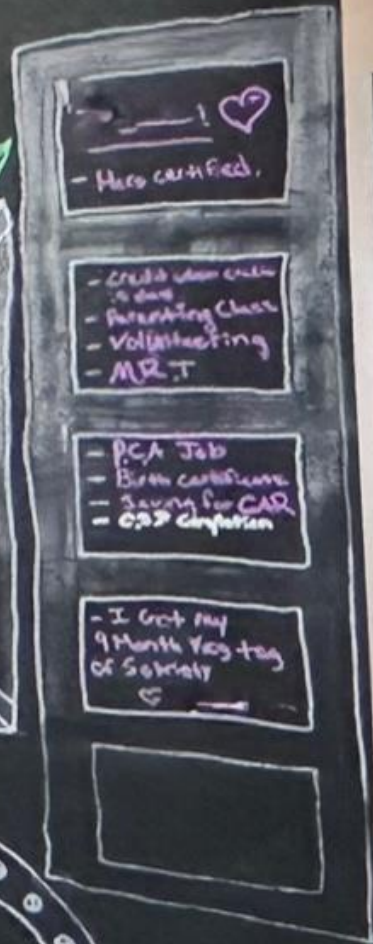 !
- Hero certified.
- Credit when
- Parenting Class
- Volunteering
- MR.T
- P.C.A Job
- Birth certificate
- Saving for CAR
- Completion
- I Got My
9 Month Key tag
of Sobriety